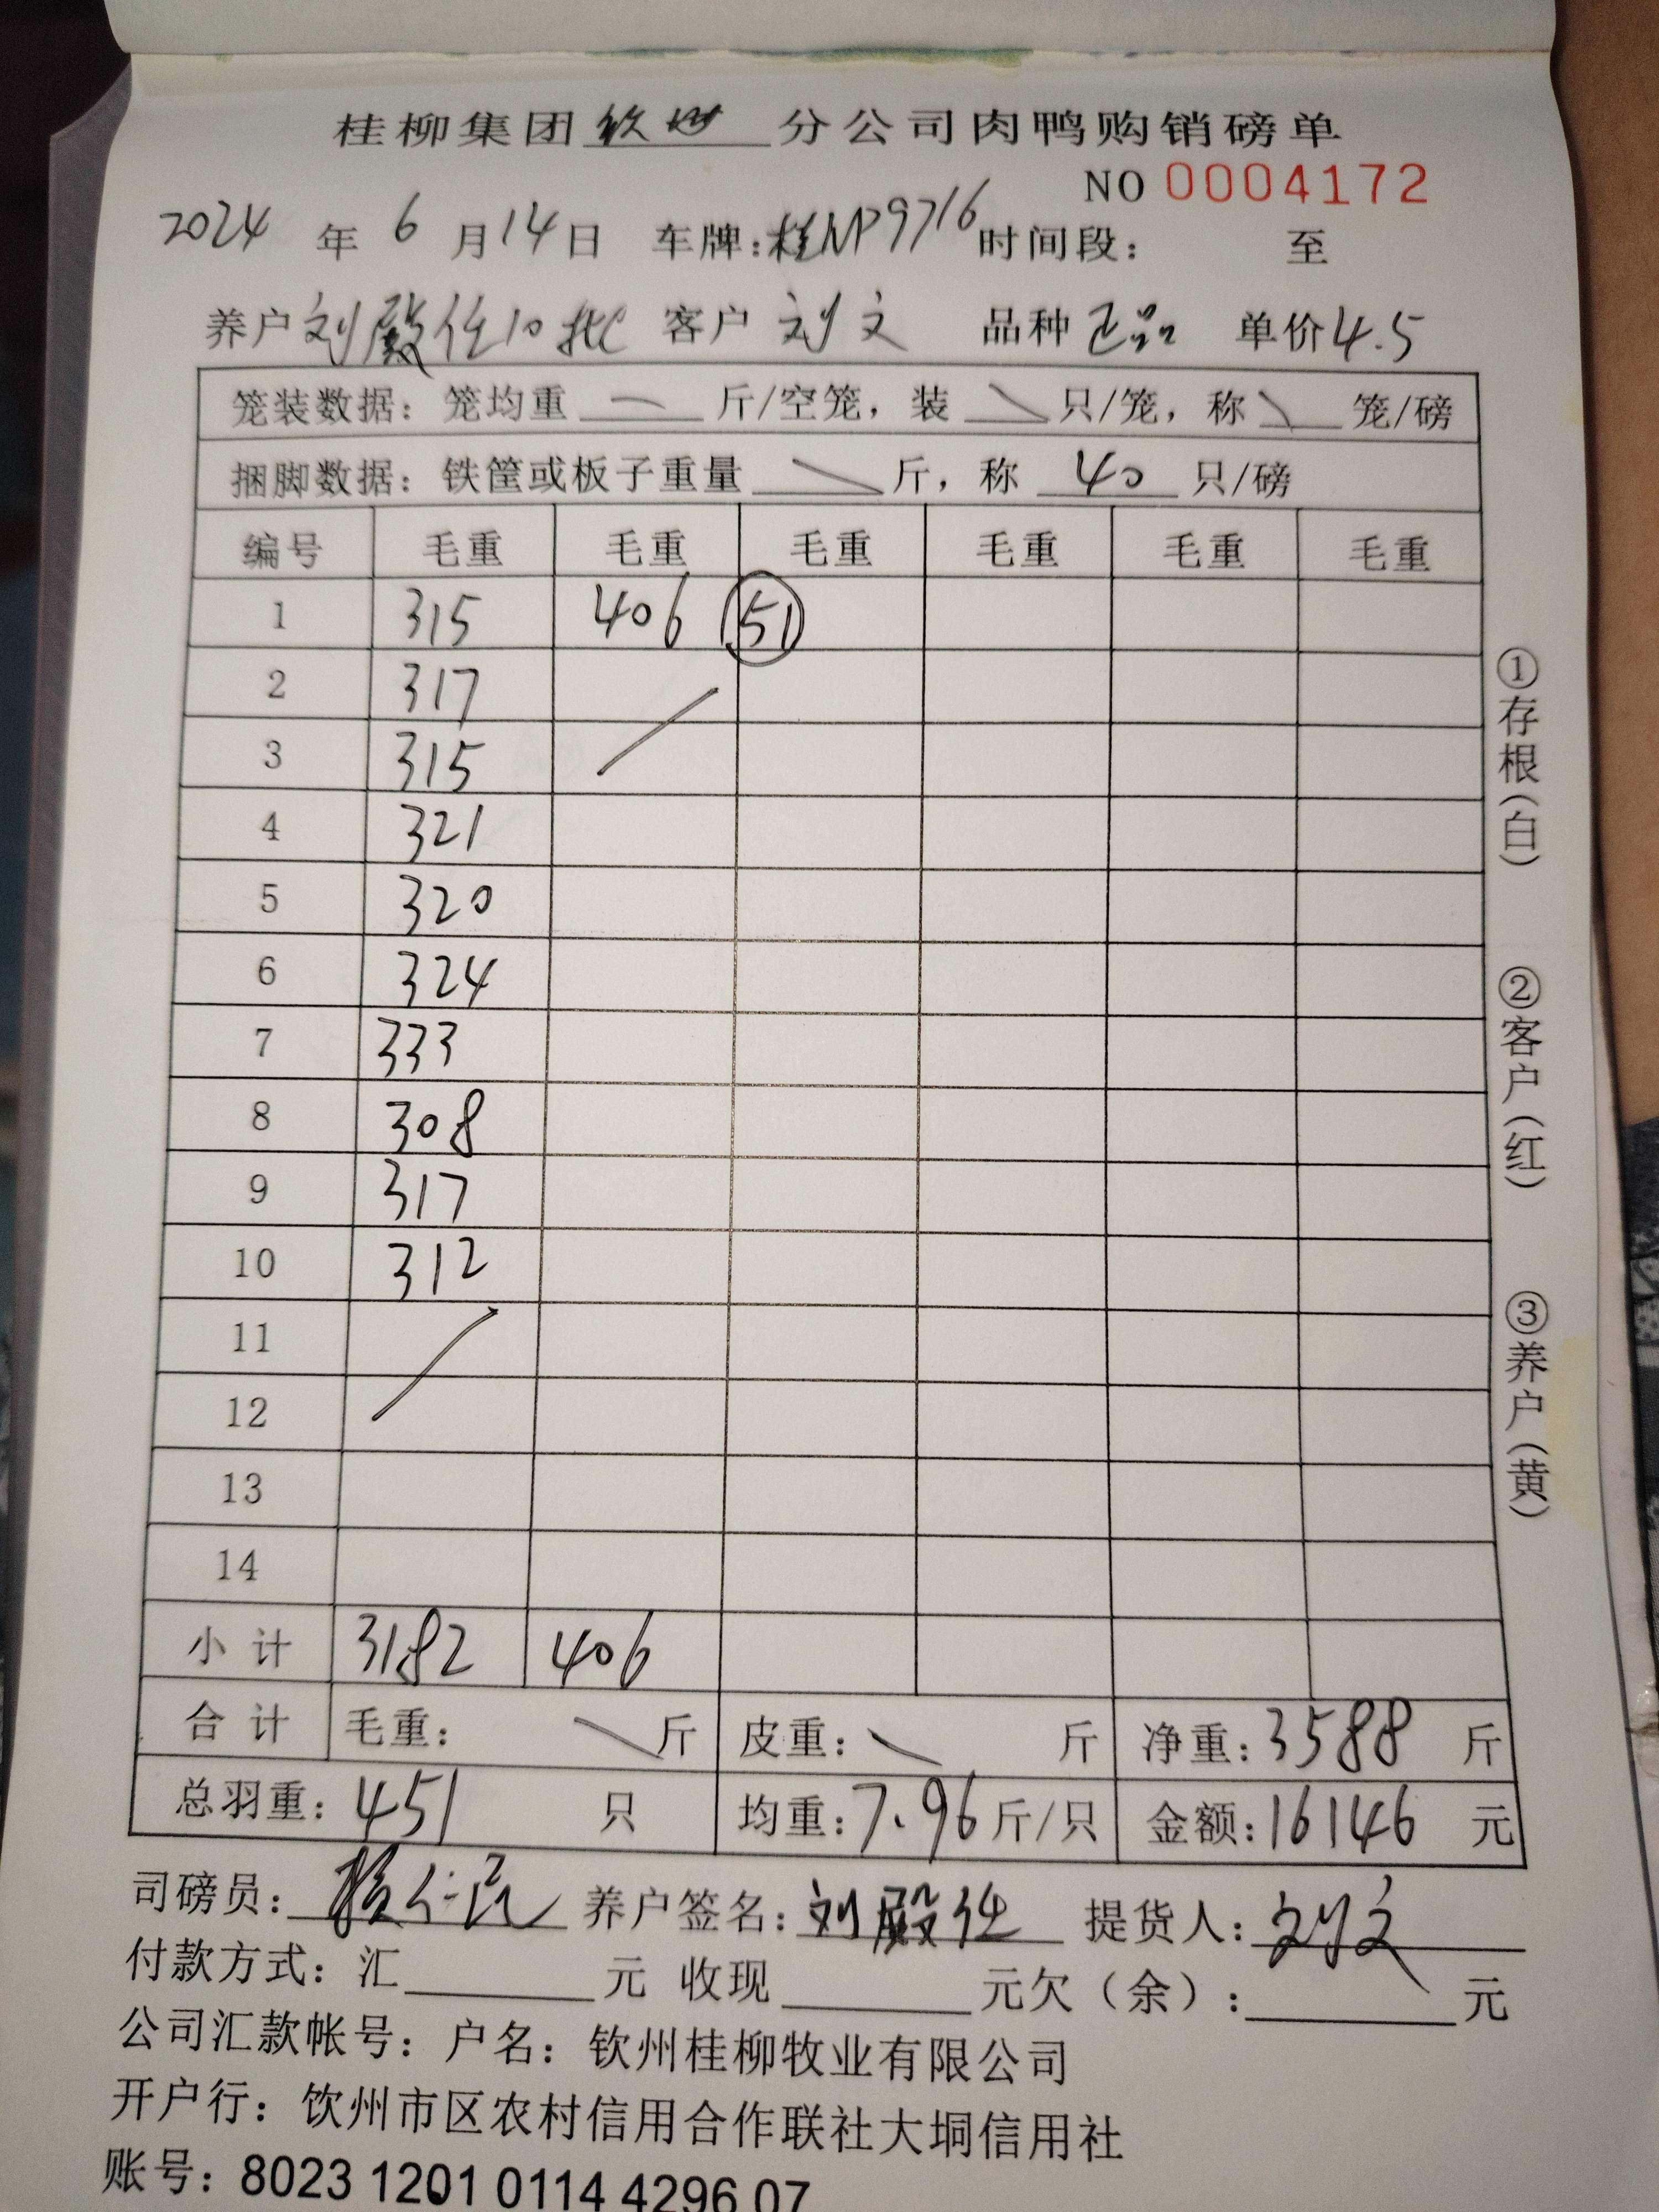 桂柳集团钦州分公司肉鸭购销磅单
NO 0004172
2024 年 6 月 14 日 车牌:桂NP9716 时间段: 至
养户 刘殿任10批 客户 刘文 品种 正品 单价 4.5
笼装数据: 笼均重 斤/空笼, 装 只/笼, 称 笼/磅
捆脚数据: 铁筐或板子重量 斤, 称 40 只/磅
编号 毛重 毛重 毛重 毛重 毛重 毛重
1 315 406 51
2 317
3 315
4 321
5 320
6 324
7 333
8 308
9 317
10 312
11
12
13
14
小计 3182 406
合计 毛重: 斤 皮重: 斤 净重: 3588 斤
总羽重: 451 只 均重: 7.96 斤/只 金额: 16146 元
司磅员: 养户签名: 刘殿任 提货人: 刘文
付款方式: 汇 元 收现 元欠(余): 元
公司汇款帐号: 户名: 钦州桂柳牧业有限公司
开户行: 钦州市区农村信用合作联社大垌信用社
账号: 8023 1201 0114 4296 07
①存根(白)
②客户(红)
③养户(黄)